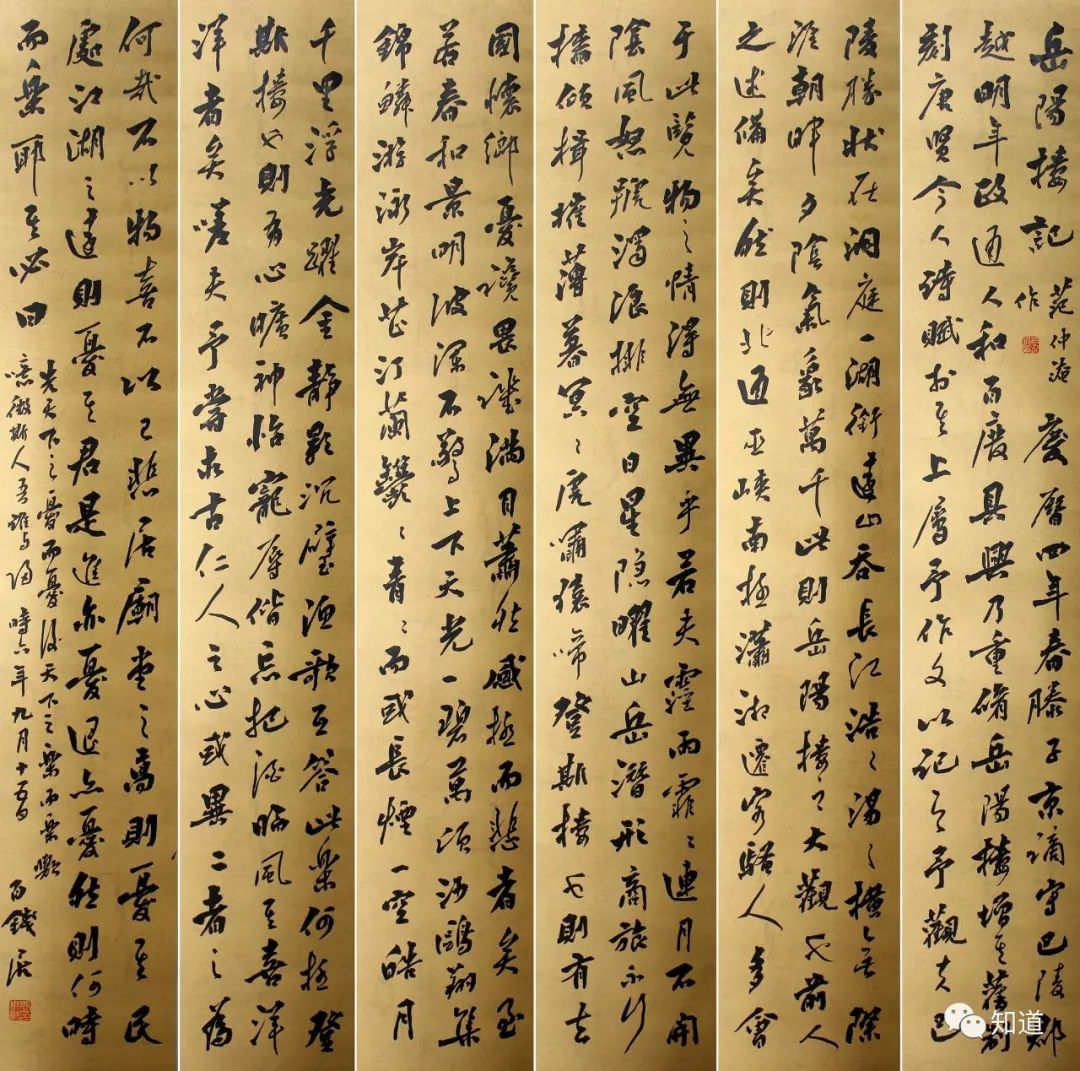 岳陽樓記 范仲淹作 慶曆四年春滕子京謫守巴陵郡
越明年政通人和百廢具興乃重脩岳陽樓增其舊制
刻唐賢今人詩賦於其上屬予作文以記之予觀夫巴
陵勝狀在洞庭一湖銜遠山吞長江浩〻湯〻橫無際
涯朝暉夕陰氣象萬千此則岳陽樓之大觀也前人
之述備矣然則北通巫峽南極瀟湘遷客騷人多會
于此覽物之情得無異乎若夫霪雨霏〻連月不開
陰風怒號濁浪排空日星隱曜山岳潛形商旅不行
檣傾楫摧薄暮冥〻虎嘯猿啼登斯樓也則有去
國懷鄉憂讒畏譏滿目蕭然感極而悲者矣至
若春和景明波瀾不驚上下天光一碧萬頃沙鷗翔集
錦鱗游泳岸芷汀蘭鬱〻青〻而或長煙一空皓月
千里浮光躍金靜影沉璧漁歌互答此樂何極登
斯樓也則有心曠神怡寵辱偕忘把酒臨風其喜洋
洋者矣嗟夫予嘗求古仁人之心或異二者之為
何哉不以物喜不以己悲居廟堂之高則憂其民
處江湖之遠則憂其君是進亦憂退亦憂然則何時
而樂耶其必曰
先天下之憂而憂後天下之樂而樂歟
噫微斯人吾誰與歸 時六年九月十五日
知道